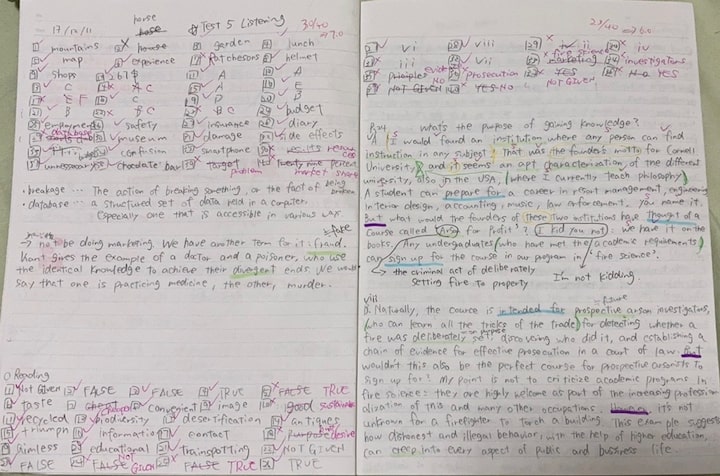 17/12/11
horse
☆ Test 5 Listening
30/40
⇒ 7.0
mountains
horse
garden
lunch
map
experience
Patchesons
helmet
shops
267
A
A
C
A C
A
E
E F
C
D
B
B
B C
B C
budget
employment
safety
insurance
diary
database
museum
damage
side effects
confusion
smartphone
resources
unnecessary
chocolate bar
target
twenty-nine percent
problem
market share
• breakage ... The action of breaking something, or the fact of being broken
• database ... a structured set of data held in a computer.
Especially one that is accessible in various ways
→ not be doing marketing. We have another term for it: fraud.
Kant gives the example of a doctor and a poisoner, who use
the identical knowledge to achieve their divergent ends. We would
say that one is practicing medicine, the other, murder.
○ Reading
NOT GIVEN
FALSE
FALSE
TRUE
FALSE TRUE
taste
cheaper
convenient
image
sustainable
recycled
biodiversity
desertification
antiques
triumph
information
contact
purpose desire
aimless
educational
trainspotting
NOT GIVEN
FALSE
FALSE NOT GIVEN
FALSE TRUE
TRUE
23/40
⇒ 6.0
vi
viii
ii
iv
iii
vii
fire science
investigators
Evidence
prosecution
marketing
NO
YES
NO YES
NOT GIVEN
YES NO
NOT GIVEN
R34 What's the purpose of gaining knowledge?
A. I would found an institution where any person can find
instruction in any subject. That was the founder's motto for Cornell
University, and it seems an apt characterization of the different
university, also in the USA, where I currently teach philosophy.
A student can prepare for a career in resort management, engineering,
interior design, accounting, music, law enforcement, you name it.
But what would the founders of these two institutions have thought of a
course called Arson for Profit'? I kid you not: we have it on the
books. Any undergraduates who have met the academic requirements
can sign up for the course in our program in 'fire science'.
→ the criminal act of deliberately
setting fire to property
I'm not kidding.
viii
= future
B. Naturally, the course is intended for prospective arson investigators,
who can learn all the tricks of the trade for detecting whether a
fire was deliberately set, discovering who did it, and establishing a
chain of evidence for effective prosecution in a court of law. But
wouldn't this also be the perfect course for prospective arsonists to
sign up for? My point is not to criticize academic programs in
fire science: they are highly welcome as part of the increasing profession-
alization of this and many other occupations. However, it's not
unknown for a firefighter to torch a building. This example suggests
how dishonest and illegal behavior, with the help of higher education,
can creep into every aspect of public and business life.